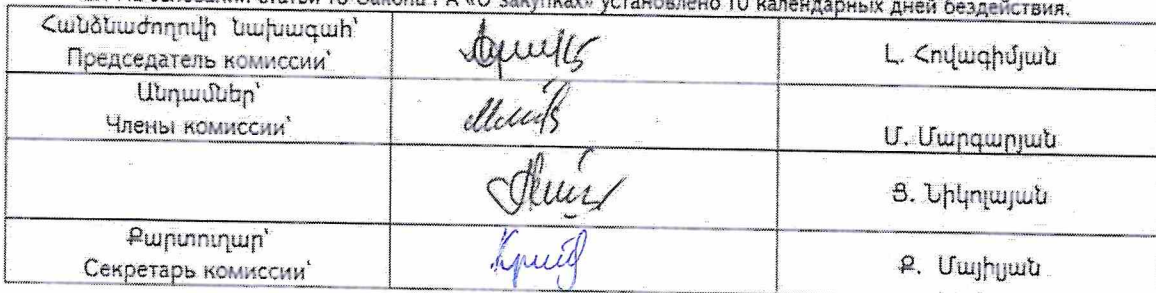 На основании статьи 10 Закона РА «О закупках» установлено 10 календарных дней бездействия.
Հանձնաժողովի նախագահ՝
Председатель комиссии՝
Լ. Հովագիմյան
Անդամներ՝
Члены комиссии՝
Մ. Մարգարյան
Ց. Նիկոլայան
Քարտուղար՝
Секретарь комиссии՝
Ք. Մայիլյան